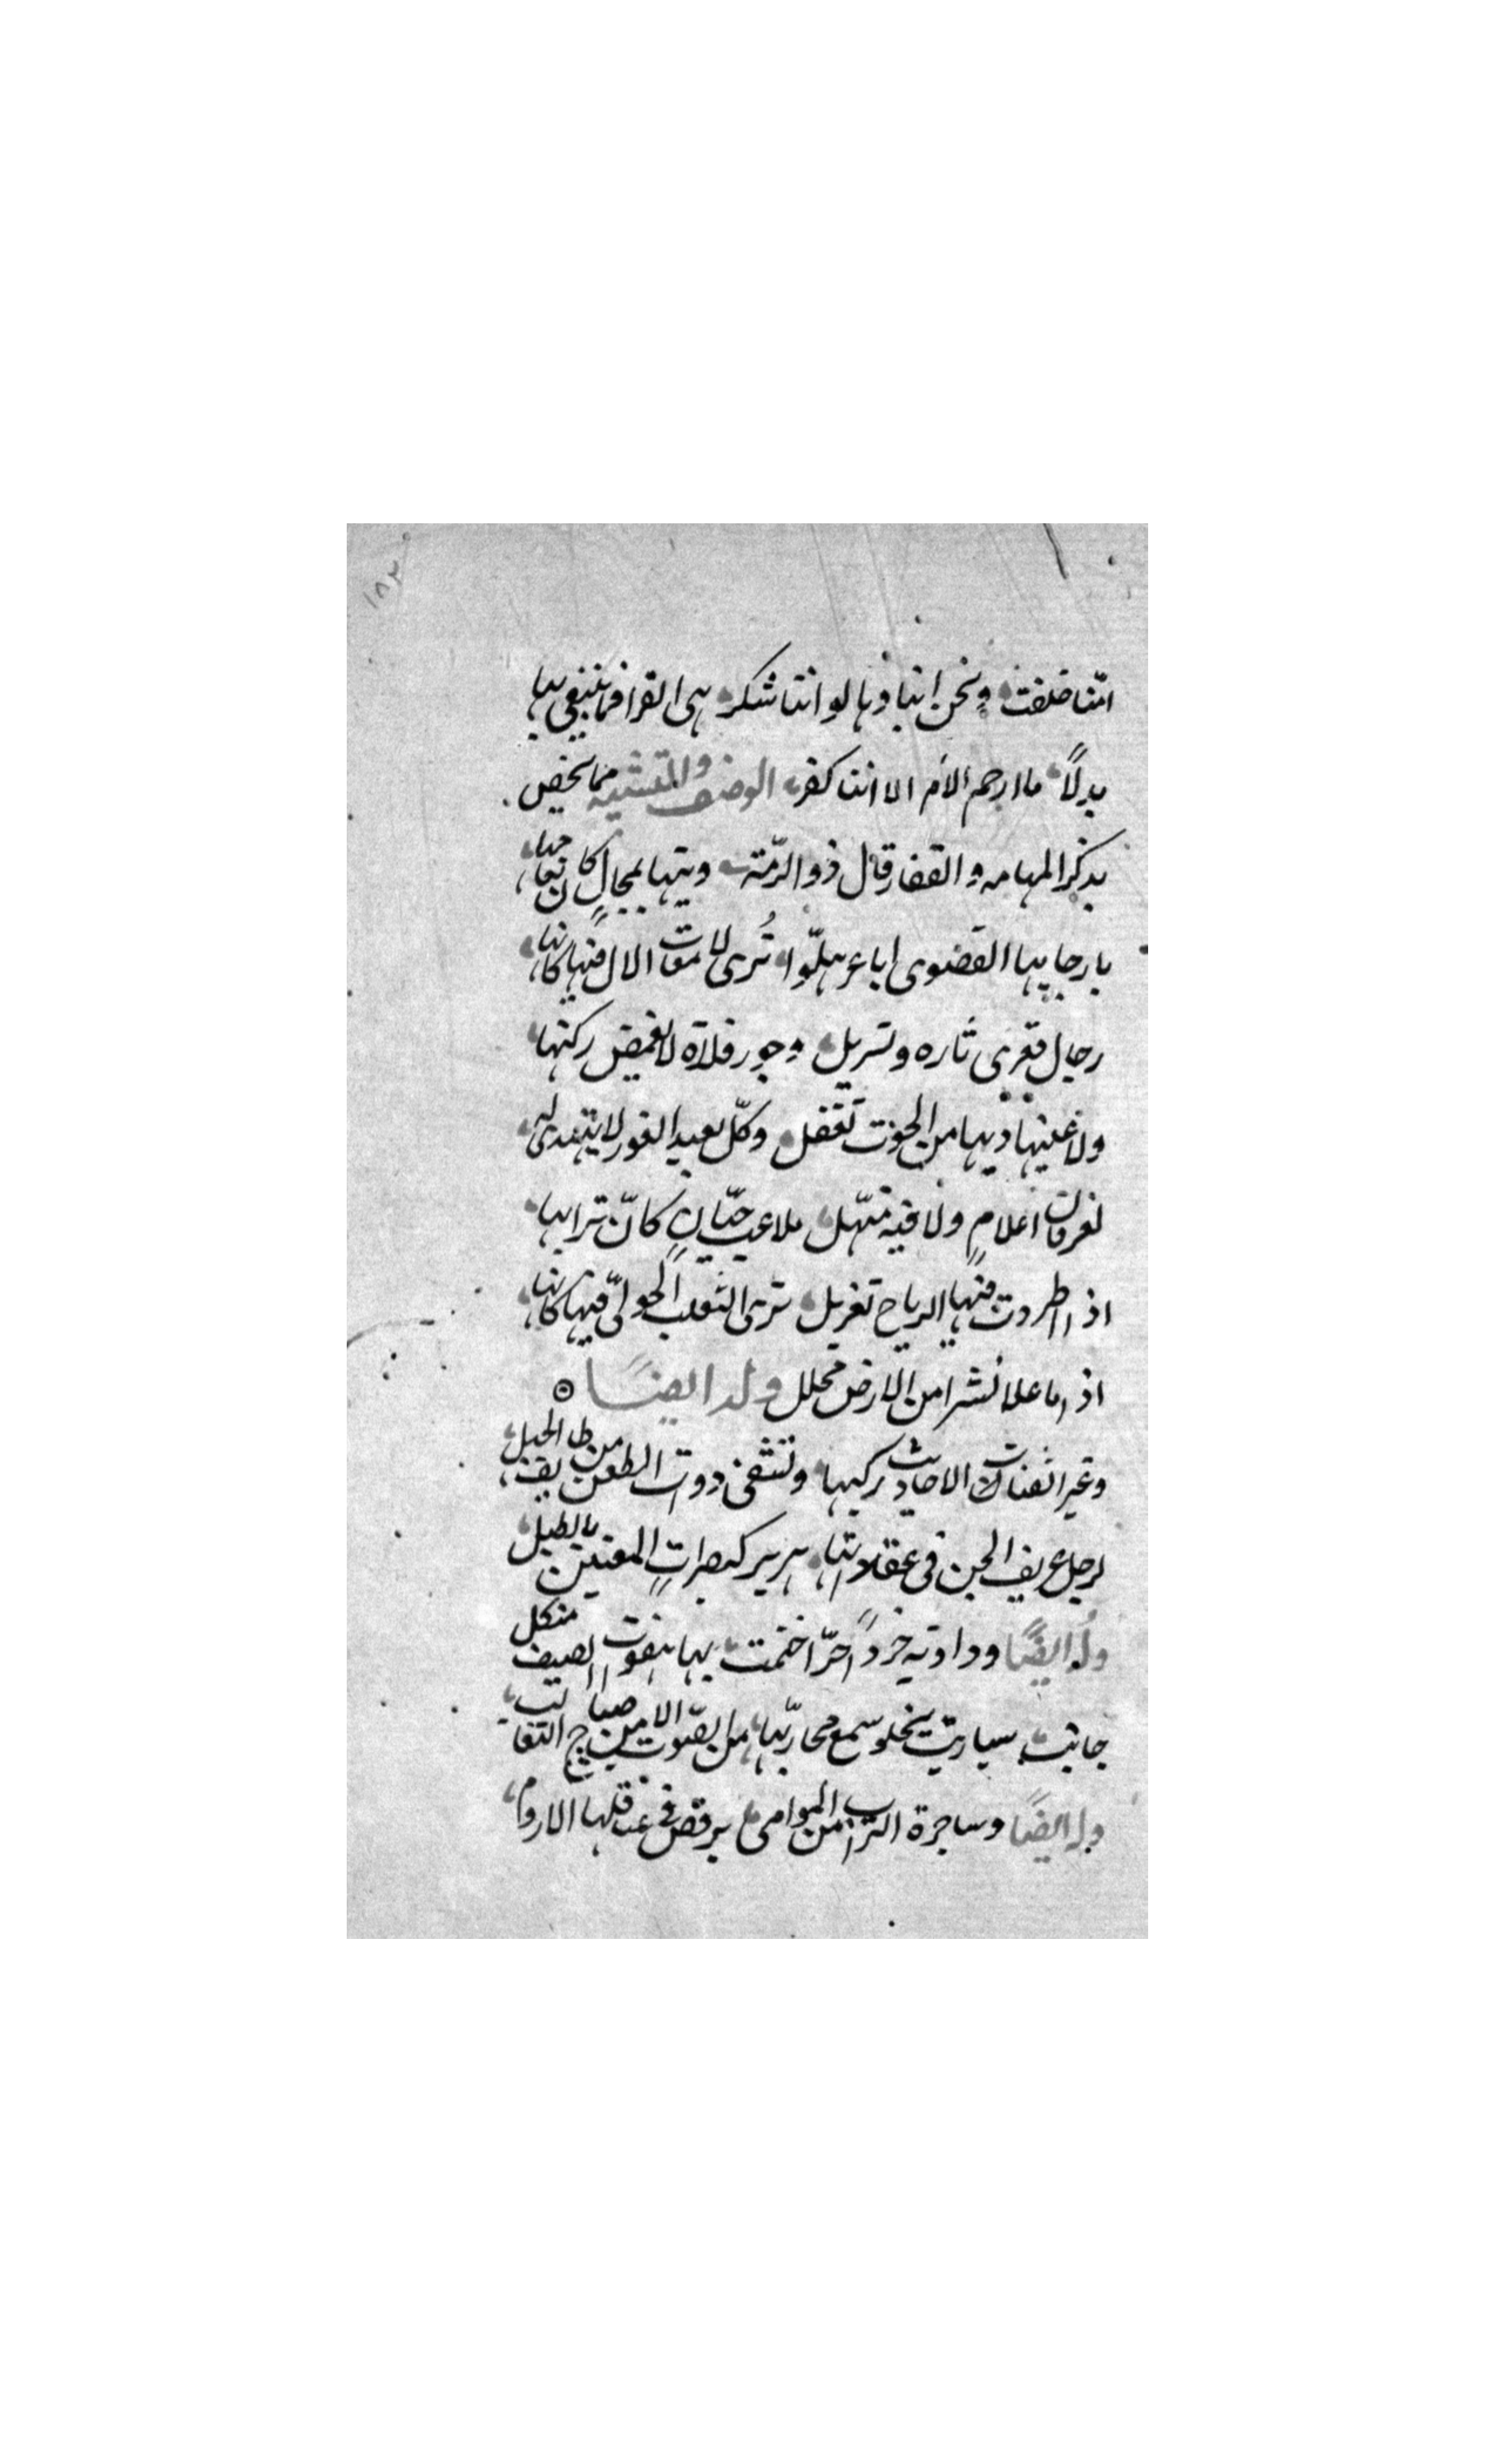 ١٨٣
امّنا خلقت ونحن ابناؤها لو اننا شكر هي القرا فما نبغي بها
بدلاً ما ارحم الأم الا اننا كفر الوصف والتشبيه مما يخص
بذكر المهامه والقفار قال ذو الرّمة وتيها لمجال كان نعامها
بارجايها القصوى اباعر هلّوا تُرى لامعات الال فيها كانها
رجال تعرى تاره وتسربل وجور فلاة لا يغمض ركبها
ولا عليها ديها من الخوف تغفل وكلّ بعيد الغور لا يهتدى له
لعرفان اعلامٍ ولا فيه منهل ملاعب جنّانٍ كانّ ترابها
اذ اطردت فيها الرياح تغربل ترى الثعلب الحولىّ فيها كانها
اذ اما علا نشرا من الارض محلل وله ايضاً
وغبر الاحاديث ركبها وتشفى ذوات الطعن من طايف الخبل
لرحل عزيف الجن فى عقداتها هرير كضراتٍ المغنين بالطبل
وله ايضاً وداوتيه جرداً حرّا خنمت بها هفوت الصيف من كل
جانب سباريت يخلو سمع من الصّوت الا من صياح الثعالب
وله ايضاً وساجرة التراب من الموامى يرقص فى عساقلها الاروم